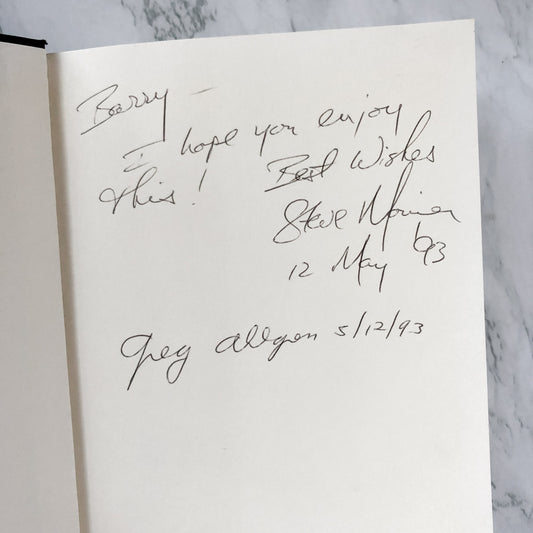 Barry –
I hope you enjoy
this!
Best Wishes
Steve
12 May '93
Greg 5/12/93